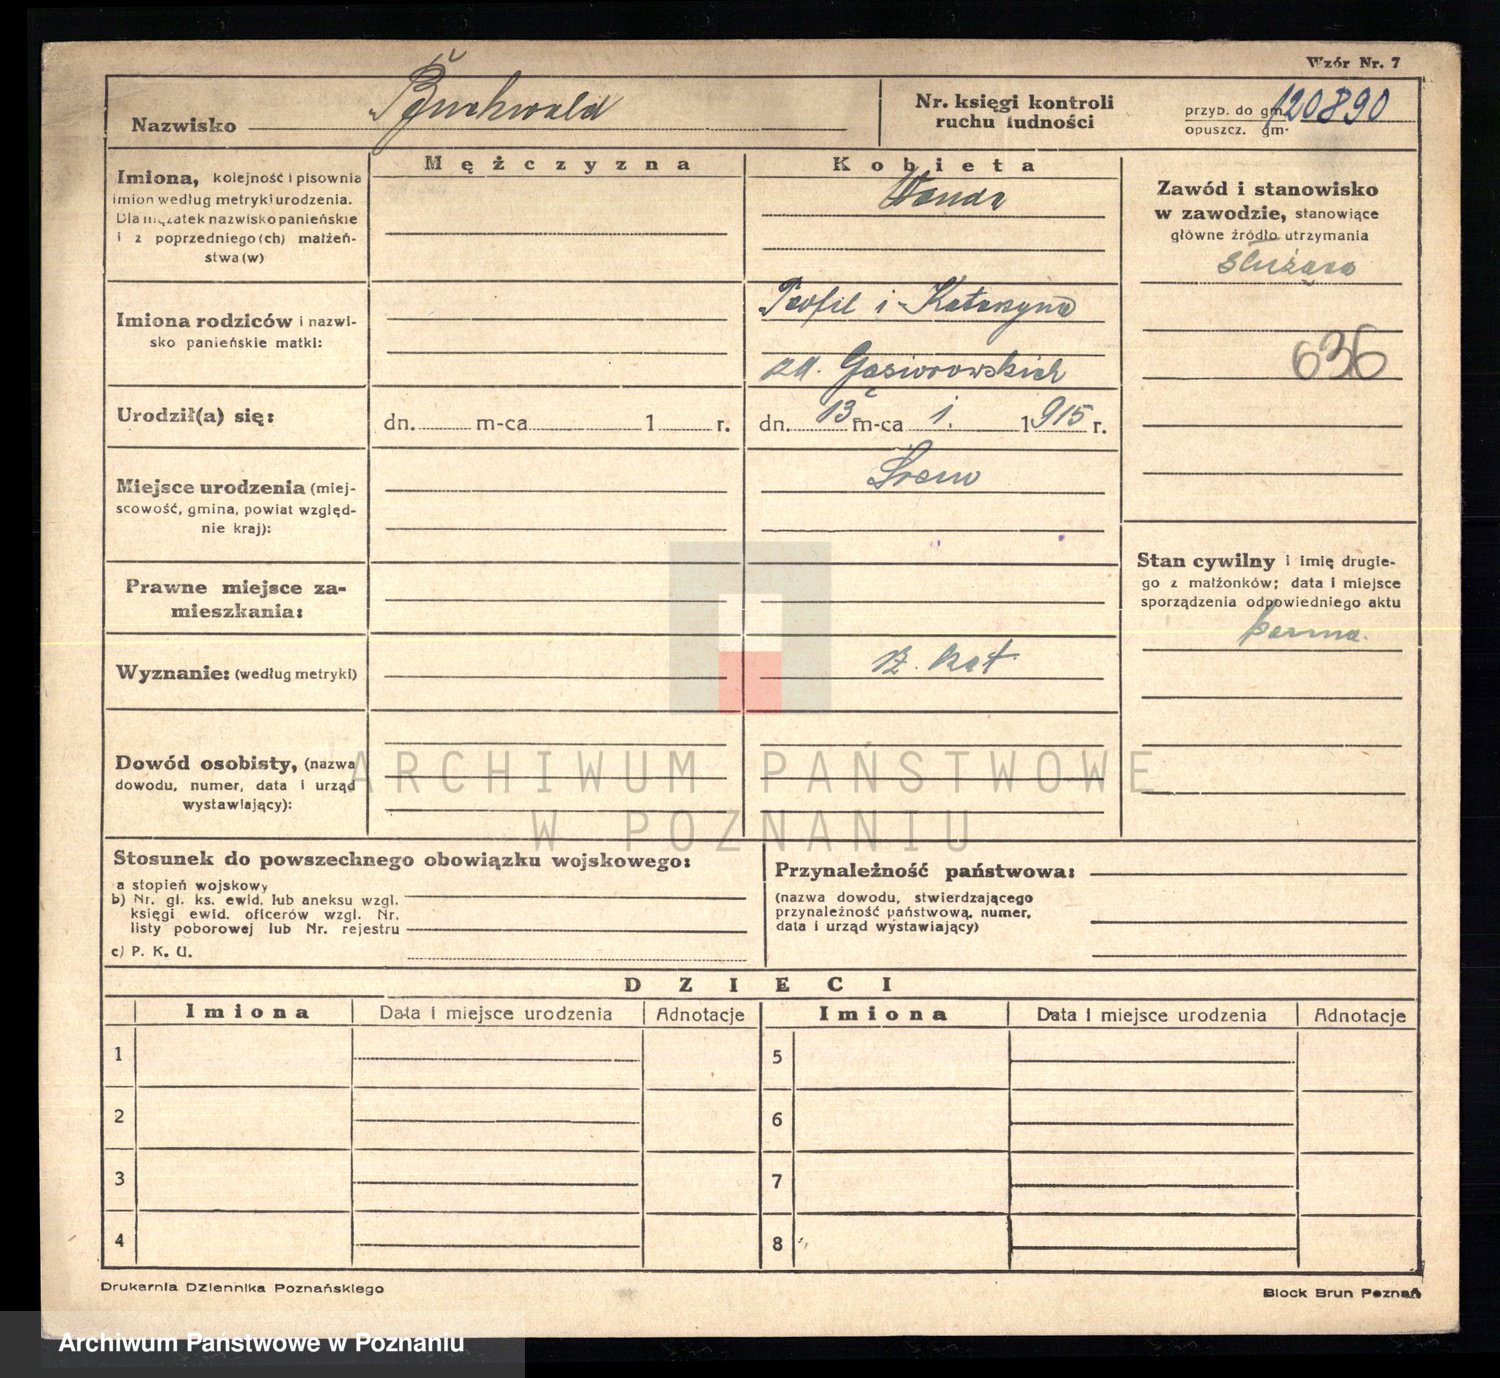 Wzór Nr. 7
Nazwisko Buchwald
Nr. księgi kontroli
ruchu ludności
przyb. do gm. 120890
opuszcz. gm.
Mężczyzna
Kobieta
Imiona, kolejność i pisownia
imion według metryki urodzenia.
Dla mężatek nazwisko panieńskie
i z poprzedniego(ch) małżeń-
stwa(w)
Wanda
Zawód i stanowisko
w zawodzie, stanowiące
główne źródło utrzymania
służąca
636
Imiona rodziców i nazwi-
sko panieńskie matki:
Teofil i Katarzyna
zd. Gąsiorowskich
Urodził(a) się:
dn. m-ca 1 r.
dn. 13 m-ca 1. 1915 r.
Miejsce urodzenia (miej-
scowość, gmina, powiat względ-
nie kraj):
Śrem
Stan cywilny i imię drugie-
go z małżonków; data i miejsce
sporządzenia odpowiedniego aktu
panna.
Prawne miejsce za-
mieszkania:
Wyznanie: (według metryki)
rz. kat.
Dowód osobisty, (nazwa
dowodu, numer, data i urząd
wystawiający):
ARCHIWUM PAŃSTWOWE
W POZNANIU
Stosunek do powszechnego obowiązku wojskowego:
a stopień wojskowy
b) Nr. gł. ks. ewid. lub aneksu wzgl.
księgi ewid. oficerów wzgl. Nr.
listy poborowej lub Nr. rejestru
c) P. K. U.
Przynależność państwowa:
(nazwa dowodu, stwierdzającego
przynależność państwową, numer,
data i urząd wystawiający)
DZIECI
Imiona Data i miejsce urodzenia Adnotacje Imiona Data i miejsce urodzenia Adnotacje
1 5
2 6
3 7
4 8
Drukarnia Dziennika Poznańskiego
Block Brun Poznań
Archiwum Państwowe w Poznaniu